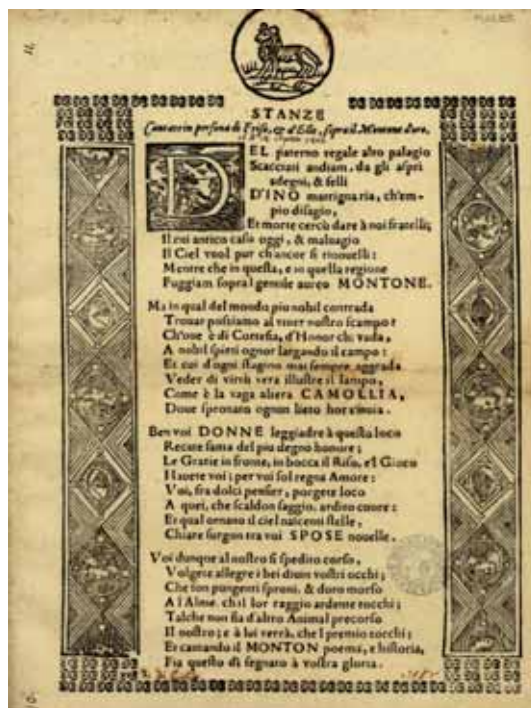 STANZE
Cantate in persona di Friso, & d'Elle, sopra il Montone d'oro.
DEL paterno regale alto palagio
Scacciati andiam, da gli aspri
sdegni, & felli
D'INO matrigna ria, ch'em-
pio disagio,
Et morte cercò dare à noi fratelli;
Il cui antico caso oggi, & maluagio
Il Ciel vuol pur ch'ancor si rinouelli:
Mentre che in questa, e in quella regione
Fuggiam sopra'l gentile aureo MONTONE.
Ma in qual del mondo piu nobil contrada
Trouar possiamo al viuer nostro scampo?
Ch'oue è di Cortesia, d'Honor chi vada,
A nobil spirti ognor largando il campo:
Et cui d'ogni stagion mai sempre aggrada
Veder di virtù vera illustre il lampo,
Come è la vaga altera CAMOLLIA,
Doue spronato ognun lieto hor s'inuia.
Ben voi DONNE leggiadre à questo loco
Recate fama del piu degno honore;
Le Gratie in fronte, in bocca il Riso, e'l Gioco
Hauete voi; per voi sol regna Amore:
Voi, fra dolci pensier, porgete loco
A quei, che scaldon saggio, ardito cuore:
Et qual ornano il ciel nascenti stelle,
Chiare surgon tra voi SPOSE nouelle.
Voi dunque al nostro si spedito corso,
Volgete allegre i bei diuin vostri occhi;
Che son pungenti sproni, & duro morso
A l'Alme, ch'il lor raggio ardente tocchi;
Talche non fia d'altro Animal precorso
Il nostro; e à lui verrà, che'l premio tocchi;
Et cantando il MONTON poema, e historia,
Fia questo dì segnato à vostra gloria.